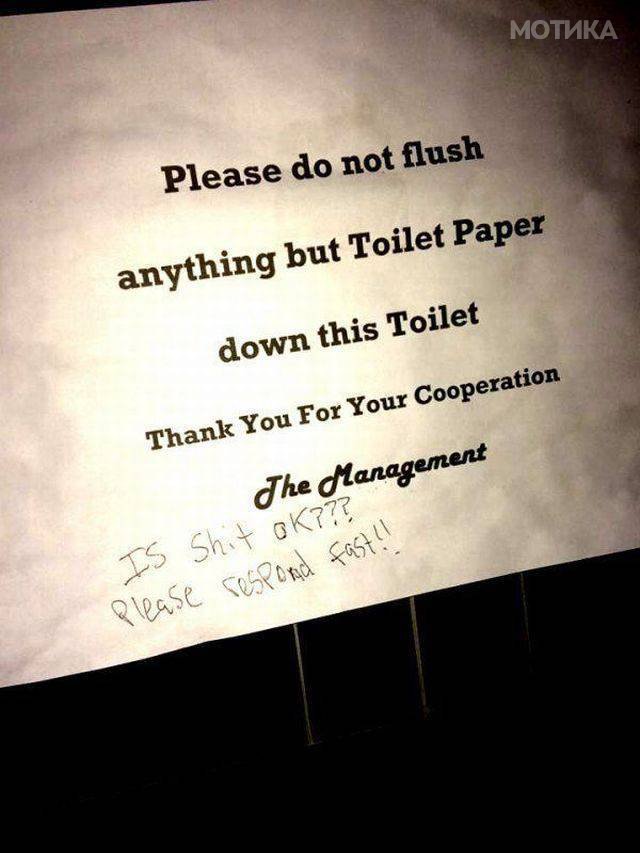 МОТИКА
Please do not flush
anything but Toilet Paper
down this Toilet
Thank You For Your Cooperation
The Management
IS Shit OK???
Please respond fast!!